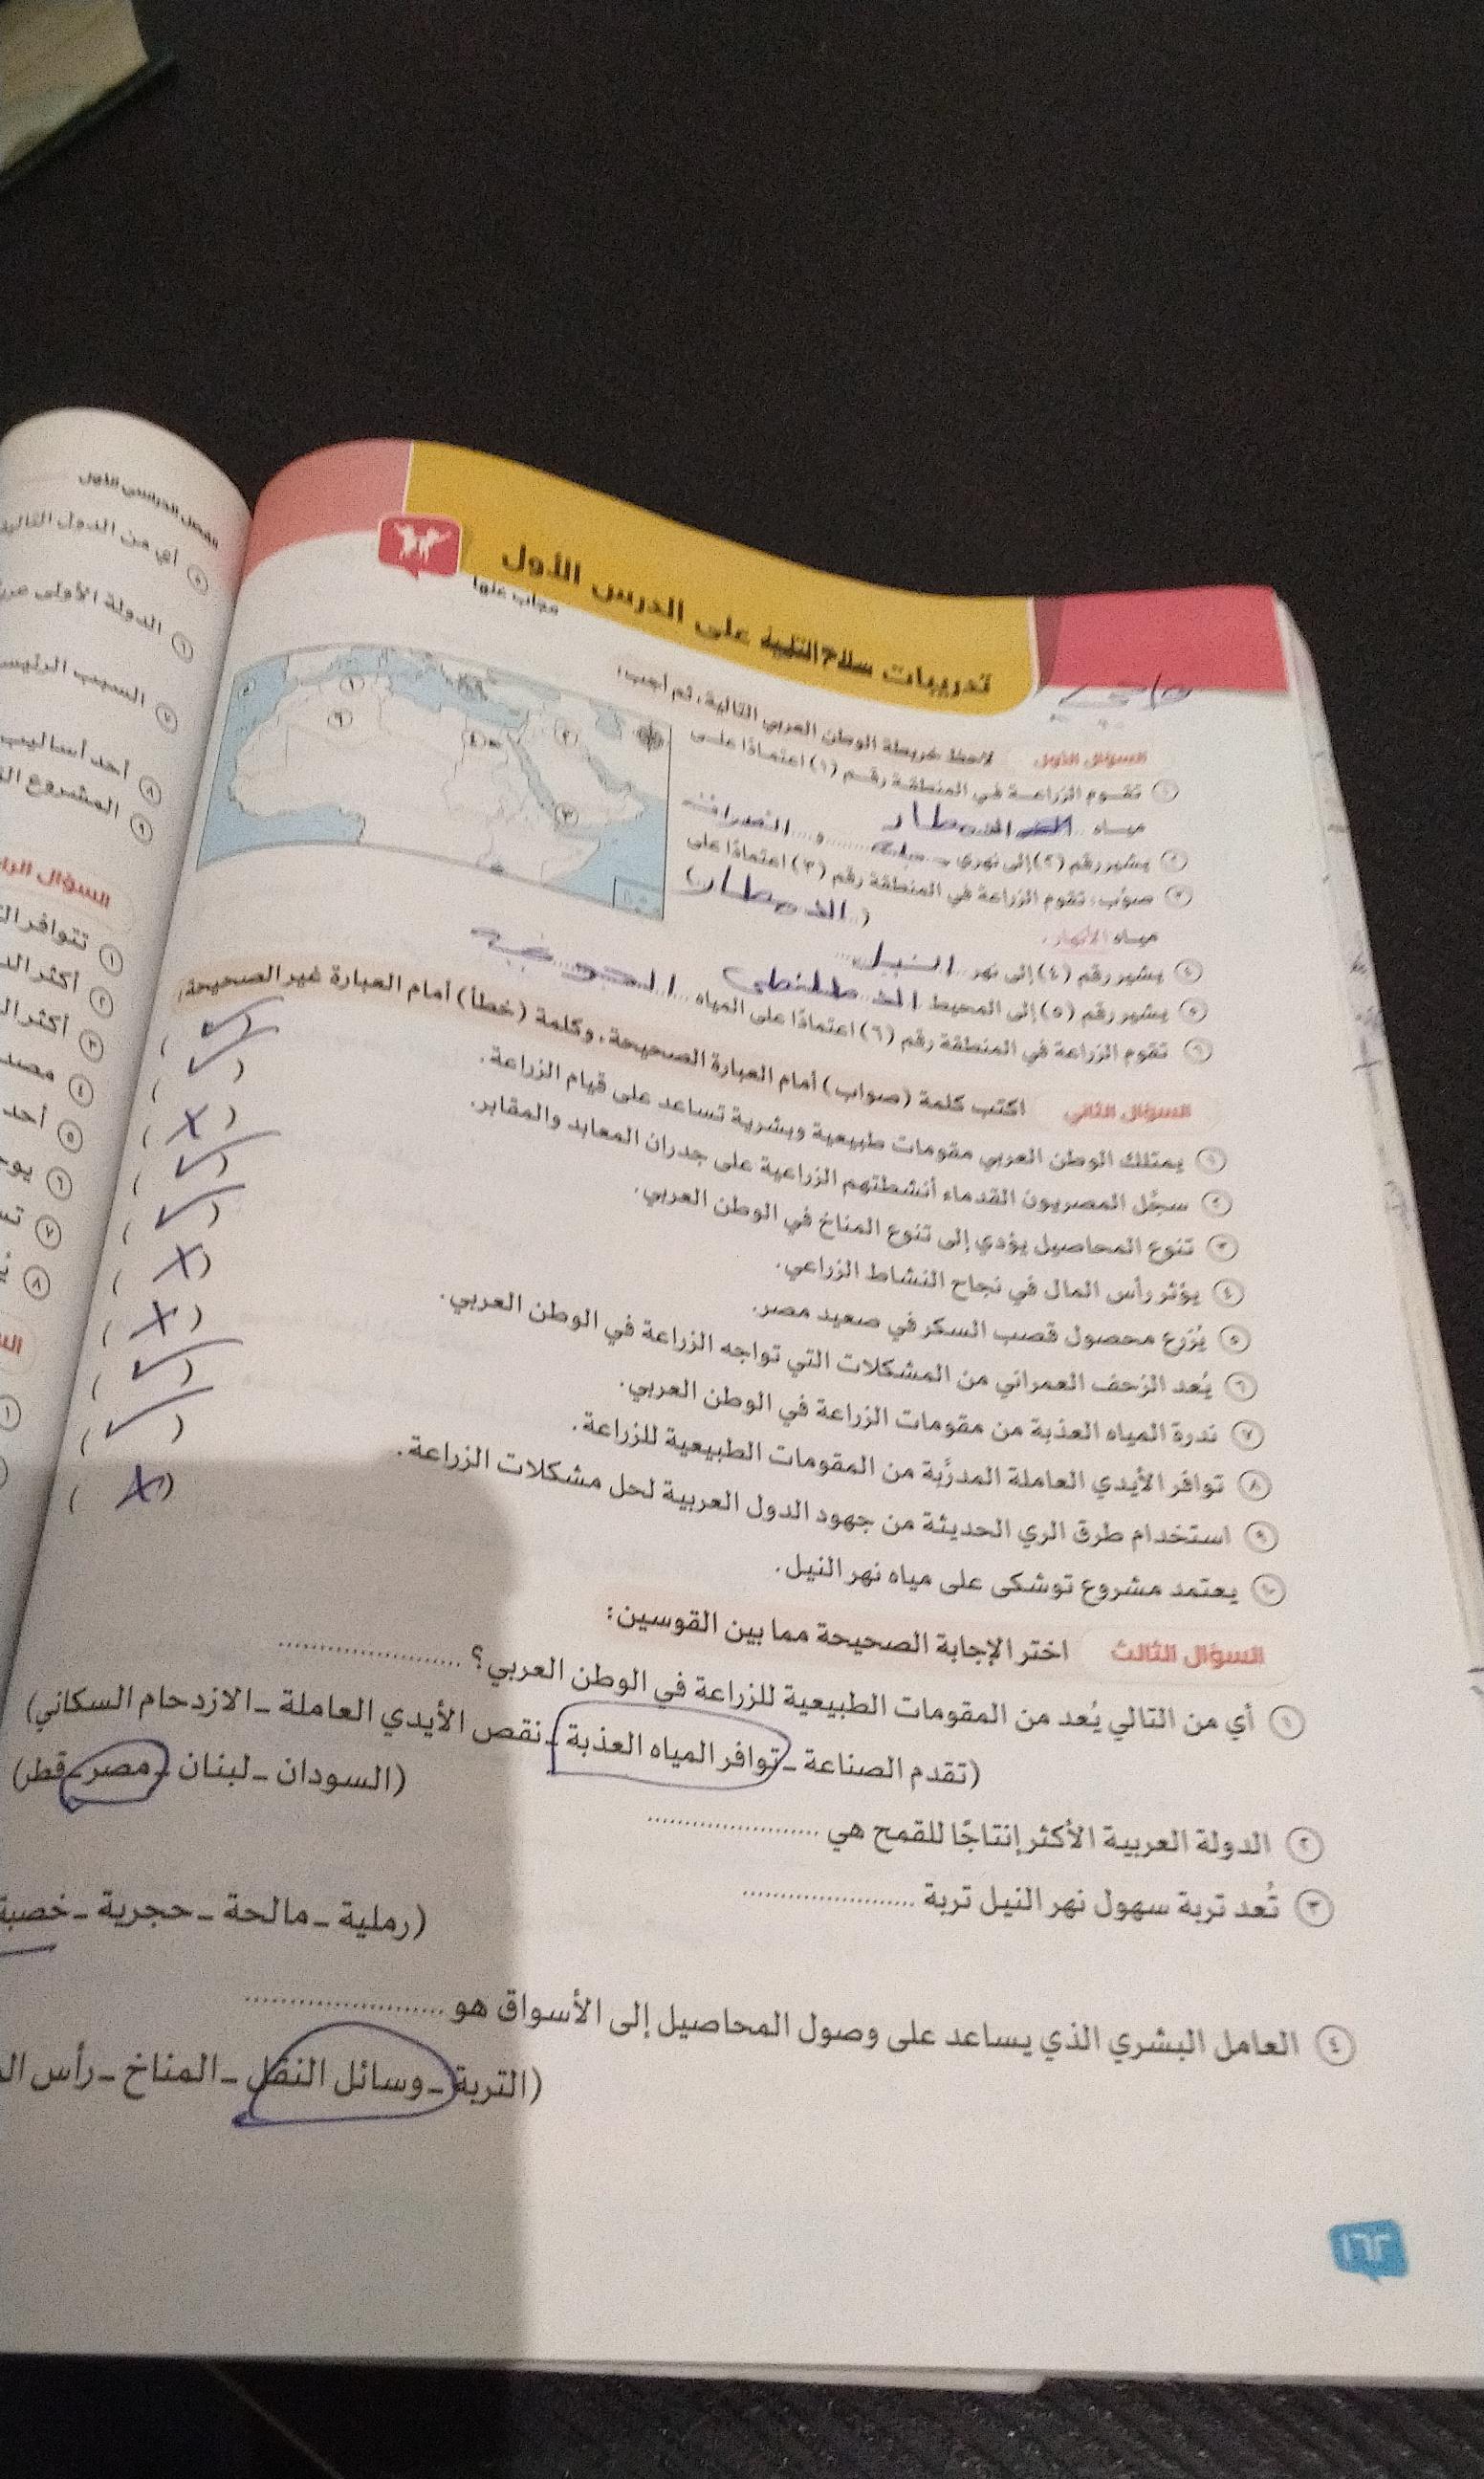 تدريبات سلاح التلميذ على الدرس الأول
مجاب عنها
السؤال الأول لاحظ خريطة الوطن العربي التالية، ثم أجب:
١ تقوم الزراعة في المنطقة رقم (١) اعتمادًا على
مياه الامطار
٢ يشير رقم (٢) إلى نهري دجلة و الفرات
٣ صوِّب: تقوم الزراعة في المنطقة رقم (٣) اعتمادًا على
مياه الأنهار. (الامطار)
٤ يشير رقم (٤) إلى نهر النيل
٥ يشير رقم (٥) إلى المحيط الاطلنطي
٦ تقوم الزراعة في المنطقة رقم (٦) اعتمادًا على المياه الجوفية
السؤال الثاني اكتب كلمة (صواب) أمام العبارة الصحيحة، وكلمة (خطأ) أمام العبارة غير الصحيحة:
١ يمتلك الوطن العربي مقومات طبيعية وبشرية تساعد على قيام الزراعة. ( ✓ )
٢ سجَّل المصريون القدماء أنشطتهم الزراعية على جدران المعابد والمقابر. ( ✓ )
٣ تنوع المحاصيل يؤدي إلى تنوع المناخ في الوطن العربي. ( X )
٤ يؤثر رأس المال في نجاح النشاط الزراعي. ( ✓ )
٥ يُزرع محصول قصب السكر في صعيد مصر. ( ✓ )
٦ يُعد الزحف العمراني من المشكلات التي تواجه الزراعة في الوطن العربي. ( X )
٧ ندرة المياه العذبة من مقومات الزراعة في الوطن العربي. ( X )
٨ توافر الأيدي العاملة المدرَّبة من المقومات الطبيعية للزراعة. ( ✓ )
٩ استخدام طرق الري الحديثة من جهود الدول العربية لحل مشكلات الزراعة. ( ✓ )
١٠ يعتمد مشروع توشكى على مياه نهر النيل. ( X )
السؤال الثالث اختر الإجابة الصحيحة مما بين القوسين:
١ أي من التالي يُعد من المقومات الطبيعية للزراعة في الوطن العربي؟ ......................
(تقدم الصناعة - توافر المياه العذبة - نقص الأيدي العاملة - الازدحام السكاني)
٢ الدولة العربية الأكثر إنتاجًا للقمح هي ......................
(السودان - لبنان - مصر - قطر)
٣ تُعد تربة سهول نهر النيل تربة ......................
(رملية - مالحة - حجرية - خصبة
٤ العامل البشري الذي يساعد على وصول المحاصيل إلى الأسواق هو ......................
(التربة - وسائل النقل - المناخ - رأس
١٦٢
الفصل الدراسي الأول
٥ أي من الدول التالية
٦ الدولة الأولى
٧ السبب الرئيس
٨ أحد أساليب
٩ المشروع
السؤال
١ تتوافر
٢ أكثر
٣ أكثر
٤
٥ أحد
٦
٧
٨